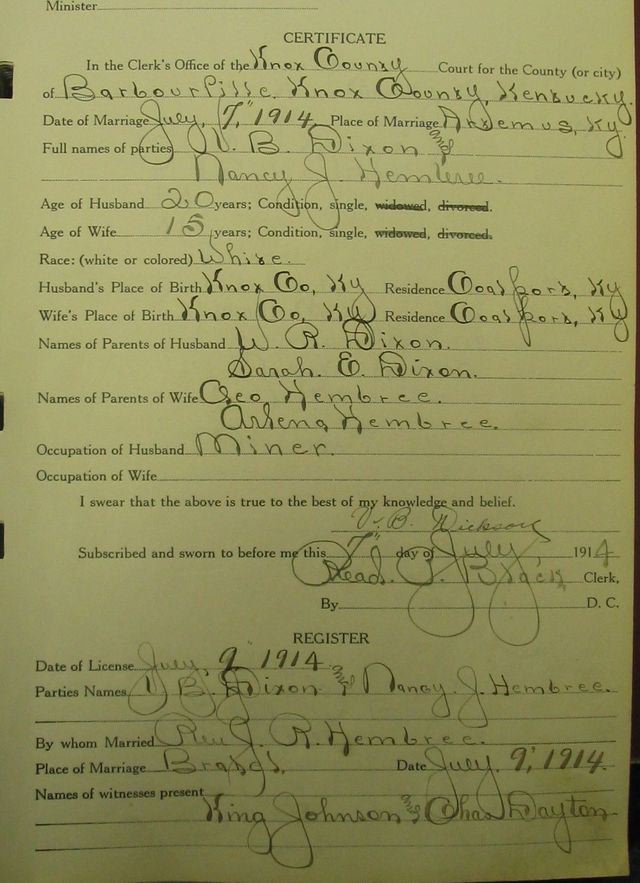 Minister
CERTIFICATE
In the Clerk's Office of the Knox County Court for the County (or city)
of Barbourville, Knox County, Kentucky.
Date of Marriage July, 7," 1914 Place of Marriage Artemus, Ky.
Full names of parties V. B. Dixon and
Nancy J. Hembree.
Age of Husband 20 years; Condition, single, widowed, divorced.
Age of Wife 15 years; Condition, single, widowed, divorced.
Race: (white or colored) White.
Husband's Place of Birth Knox Co, Ky Residence Coalport, Ky
Wife's Place of Birth Knox Co, Ky Residence Coalport, Ky
Names of Parents of Husband W. R. Dixon.
Sarah. E. Dixon.
Names of Parents of Wife Geo Hembree.
Arlena Hembree.
Occupation of Husband Miner.
Occupation of Wife
I swear that the above is true to the best of my knowledge and belief.
V. B. Dickson
Subscribed and sworn to before me this 7" day of July 1914
Read. P. Black Clerk,
By D. C.
REGISTER
Date of License July, 9 1914
Parties Names V. B. Dixon and Nancy. J. Hembree.
By whom Married Rev. J. R. Hembree.
Place of Marriage Date July, 9, 1914.
Names of witnesses present
King Johnson and Chas Dayton